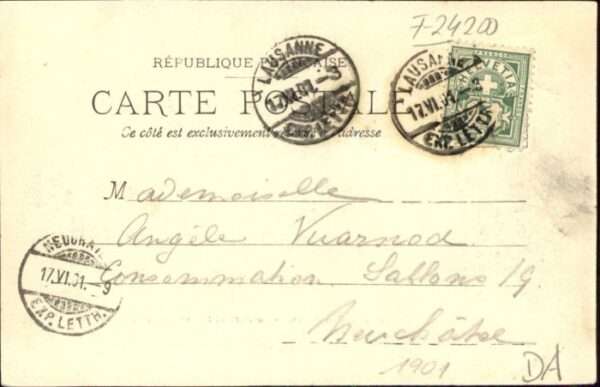 F24200
RÉPUBLIQUE FRANÇAISE
CARTE POSTALE
Ce côté est exclusivement réservé à l'adresse
LAUSANNE
17.VI.01.
EXP. LETTR.
LAUSANNE
17.VI.01.
EXP. LETTR.
HELVETIA
Mademoiselle
Angèle Vuarnod
Consommation Sablons 19
Neuchâtel
NEUCHAT
17.VI.01.-9
EXP. LETTR.
1901
DA